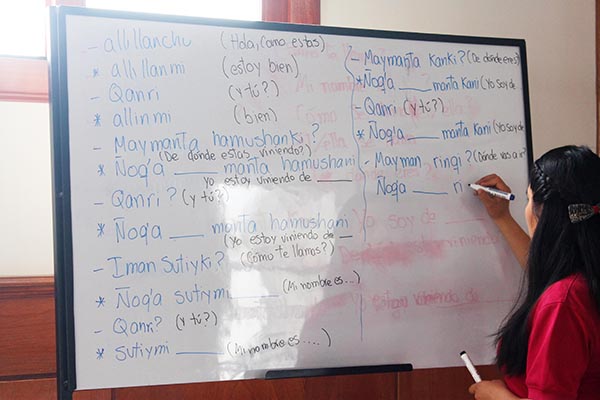 - allillanchu (Hola, Como estas)
* allillanmi (estoy bien)
- Qanri (y tú?)
* allinmi (bien)
- Maymanta hamushanki?
(De dónde estas viniendo?)
* Ñoq'a ____ manta hamushani
yo estoy viniendo de ____
- Qanri? (y tú?)
* Ñoq'a ____ manta hamushani
(Yo estoy viniendo de __
- Iman Sutiyki? (Cómo te llamas?)
* Ñoq'a sutiymi ____ (Mi nombre es...)
- Qanri? (y tú?)
* sutiymi ____ (Mi nombre es ....)
- Maymanta Kanki? (De dónde eres?)
* Ñoq'a ____ manta Kani (Yo soy de
- Qanri (y tú?)
* Ñoq'a ____ manta Kani (Yo soy de
- Mayman ringi? (Dónde vas a ir?
Ñoq'a ____ ri
Yo soy de